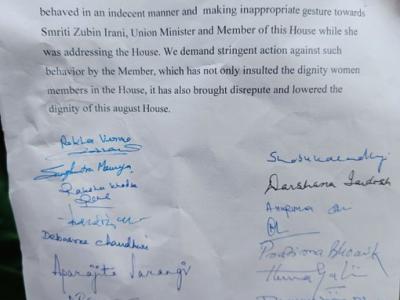 behaved in an indecent manner and making inappropriate gesture towards
Smriti Zubin Irani, Union Minister and Member of this House while she
was addressing the House. We demand stringent action against such
behavior by the Member, which has not only insulted the dignity women
members in the House, it has also brought disrepute and lowered the
dignity of this august House.
Rekha Verma
Sanghmitra Maurya
Debasree Chaudhuri
Aparajita Sarangi
Darshana Jardosh
Pratima Bhoumik